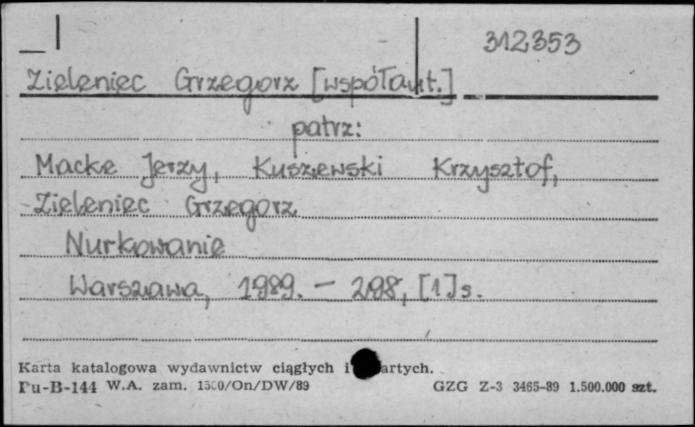 312353
Zieleniec Grzegorz [współaut.]
patrz:
Macke Jerzy, Kuszewski Krzysztof,
Zieleniec Grzegorz
Nurkowanie
Warszawa, 1989. — 298, [1] s.
Karta katalogowa wydawnictw ciągłych i
Pu-B-144 W.A. zam. /On/DW/89 GZG Z-3 3465-89 1.500.000 szt.